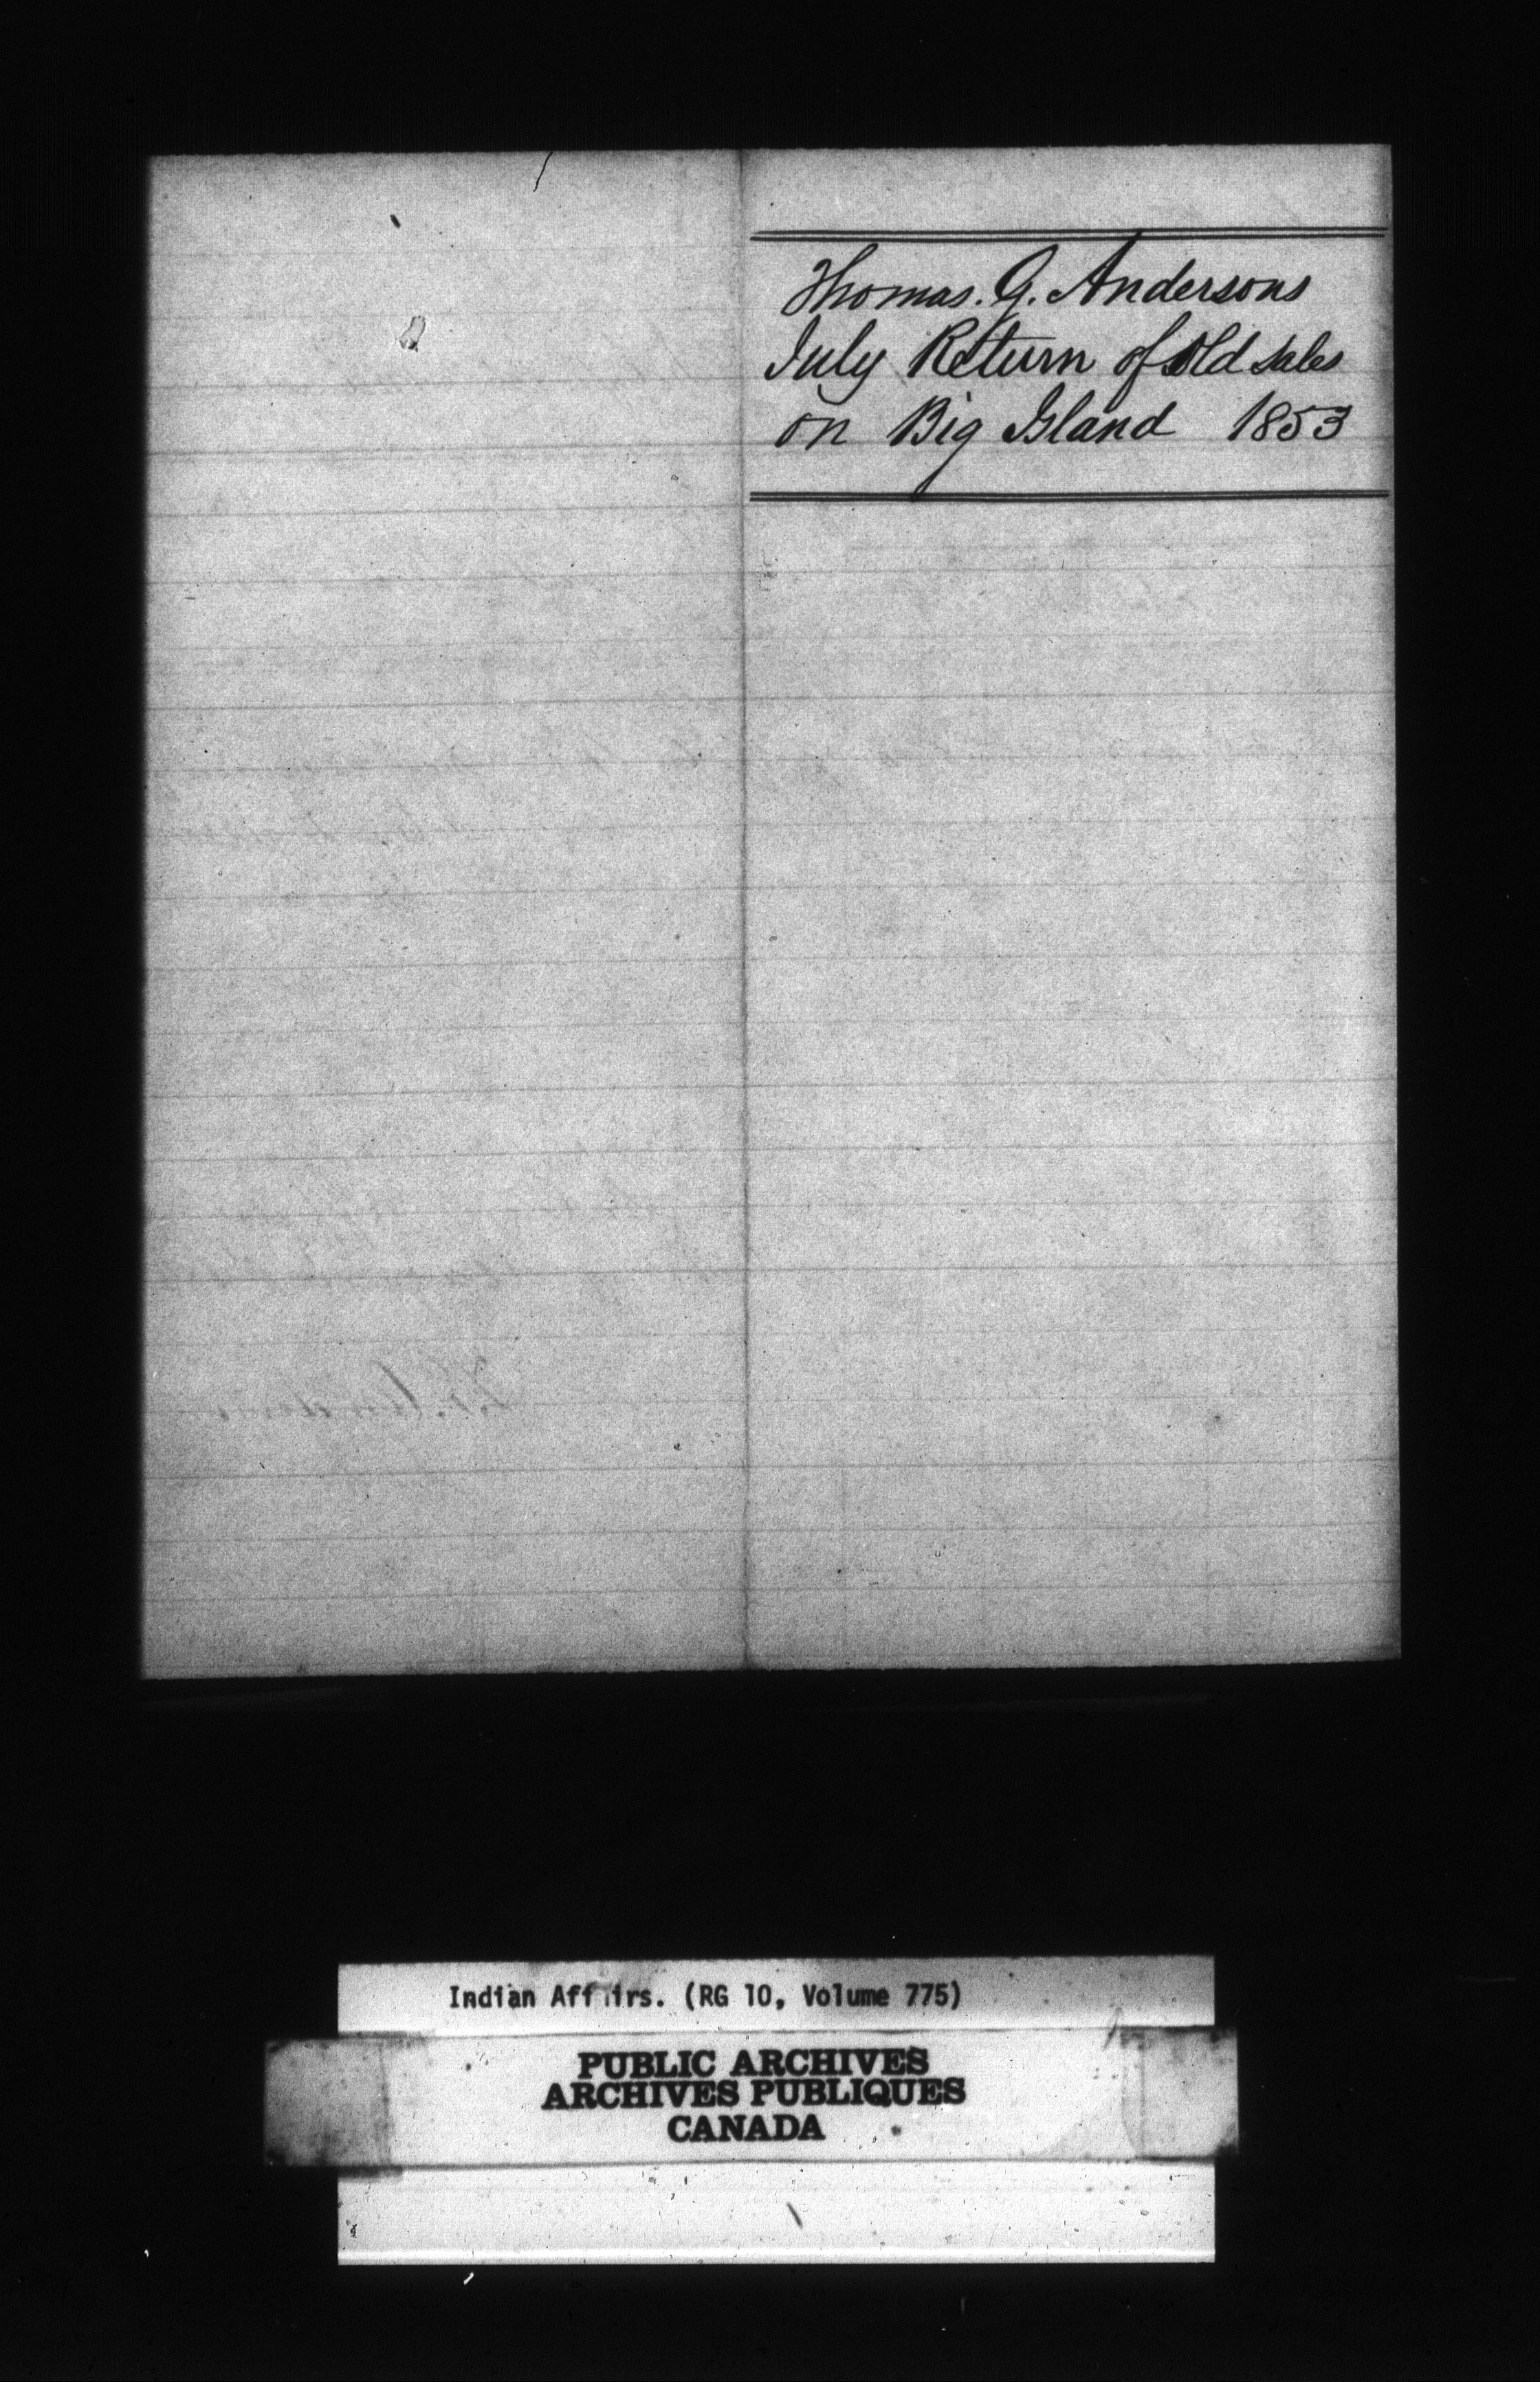 Thomas. G. Andersons
July Return of Old Sales
on Big Island 1853
Indian Affairs. (RG 10, Volume 775)
PUBLIC ARCHIVES
ARCHIVES PUBLIQUES
CANADA